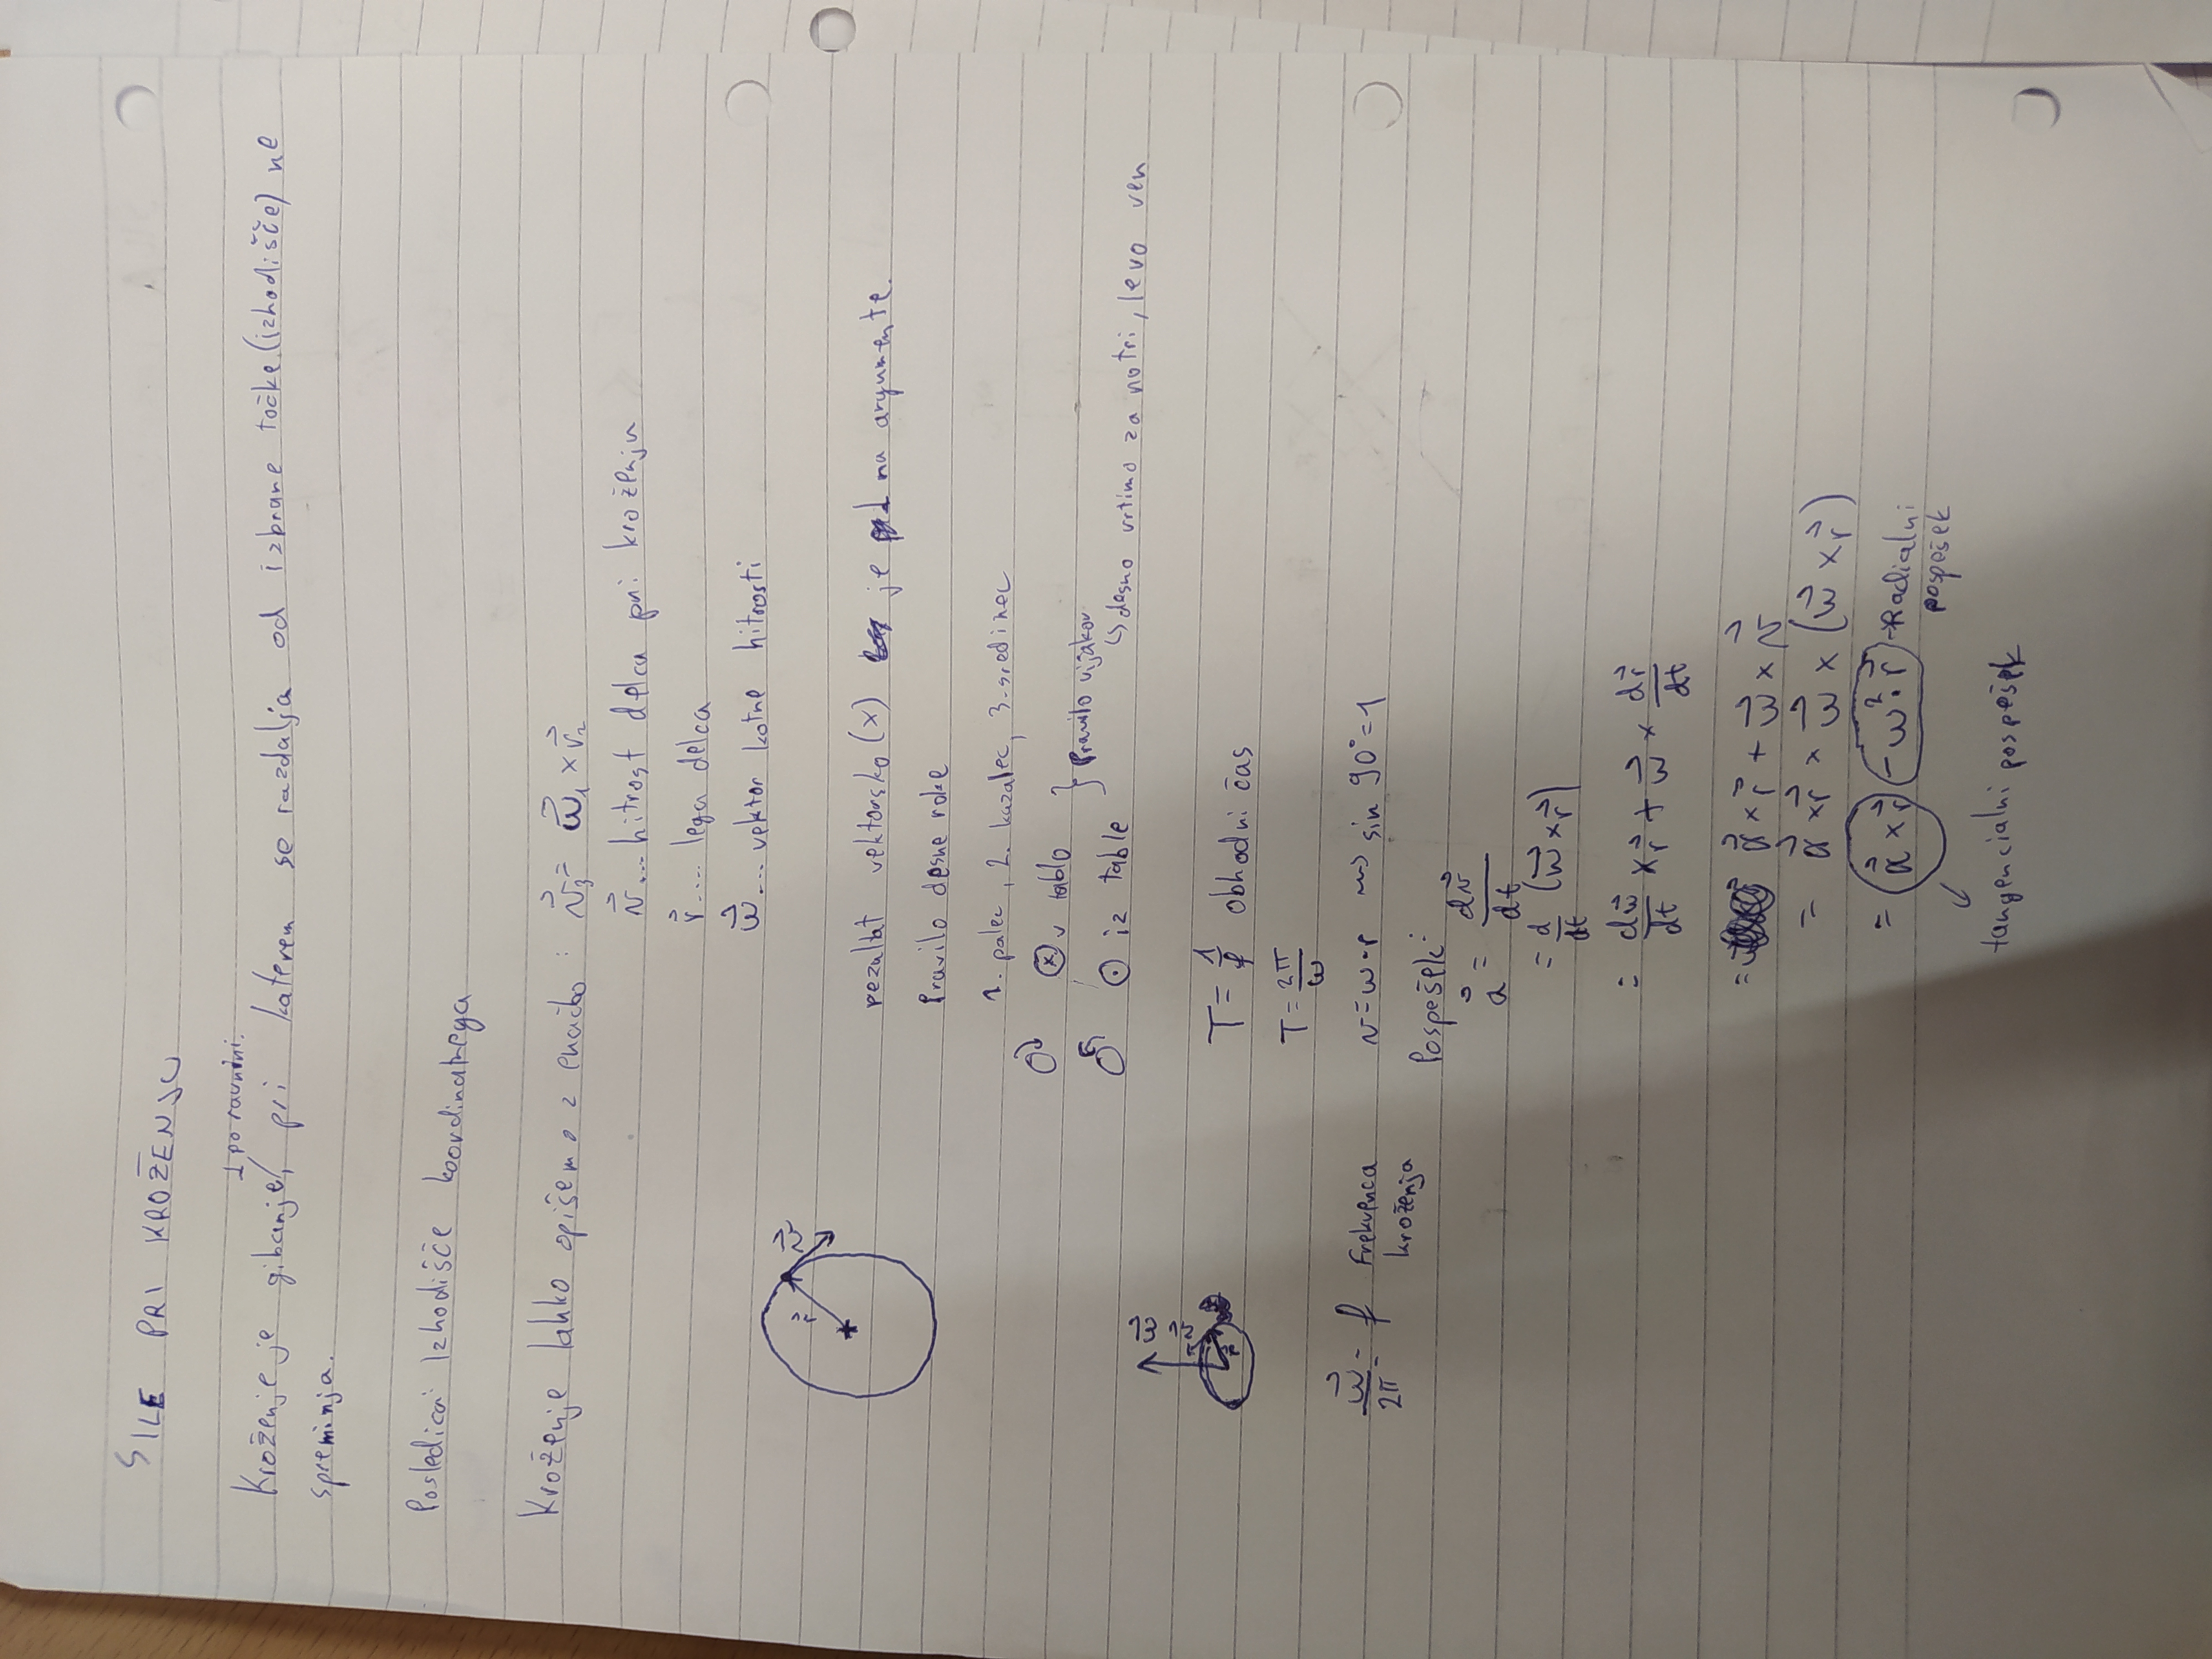 SILE PRI KROŽENJU
⊥ po ravnini.
Kroženje je gibanje, pri katerem se razdalja od izbrane točke (izhodišče) ne
spreminja.
Posledica: Izhodišče koordinatnega
Kroženje lahko opišemo z enačbo: v⃗₃ = ω⃗₁ × r⃗₂
v⃗ ... hitrost delca pri kroženju
r⃗ .... lega delca
ω⃗ ... vektor kotne hitrosti
r⃗ v⃗
rezultat vektorsko (x) je ⊥ na argumente.
Pravilo desne roke
1. palec, 2. kazalec, 3. sredinec
⊗ v tablo
} Pravilo vijakov
⊙ iz table
↳ desno vrtimo za notri, levo ven
ω⃗
v⃗
r⃗
T = 1/f obhodni čas
T = 2π/ω
ω⃗/2π = f Frekvenca
kroženja
v = ω·r ⇝ sin 90° = 1
Pospešek:
a⃗ = dv⃗/dt
= d/dt (ω⃗ × r⃗)
= dω⃗/dt × r⃗ + ω⃗ × dr⃗/dt
= α⃗ × r⃗ + ω⃗ × v⃗
= α⃗ × r⃗ × ω⃗ × (ω⃗ × r⃗)
= α⃗ × r⃗ - ω²·r⃗ → Radialni
pospešek
tangencialni pospešek